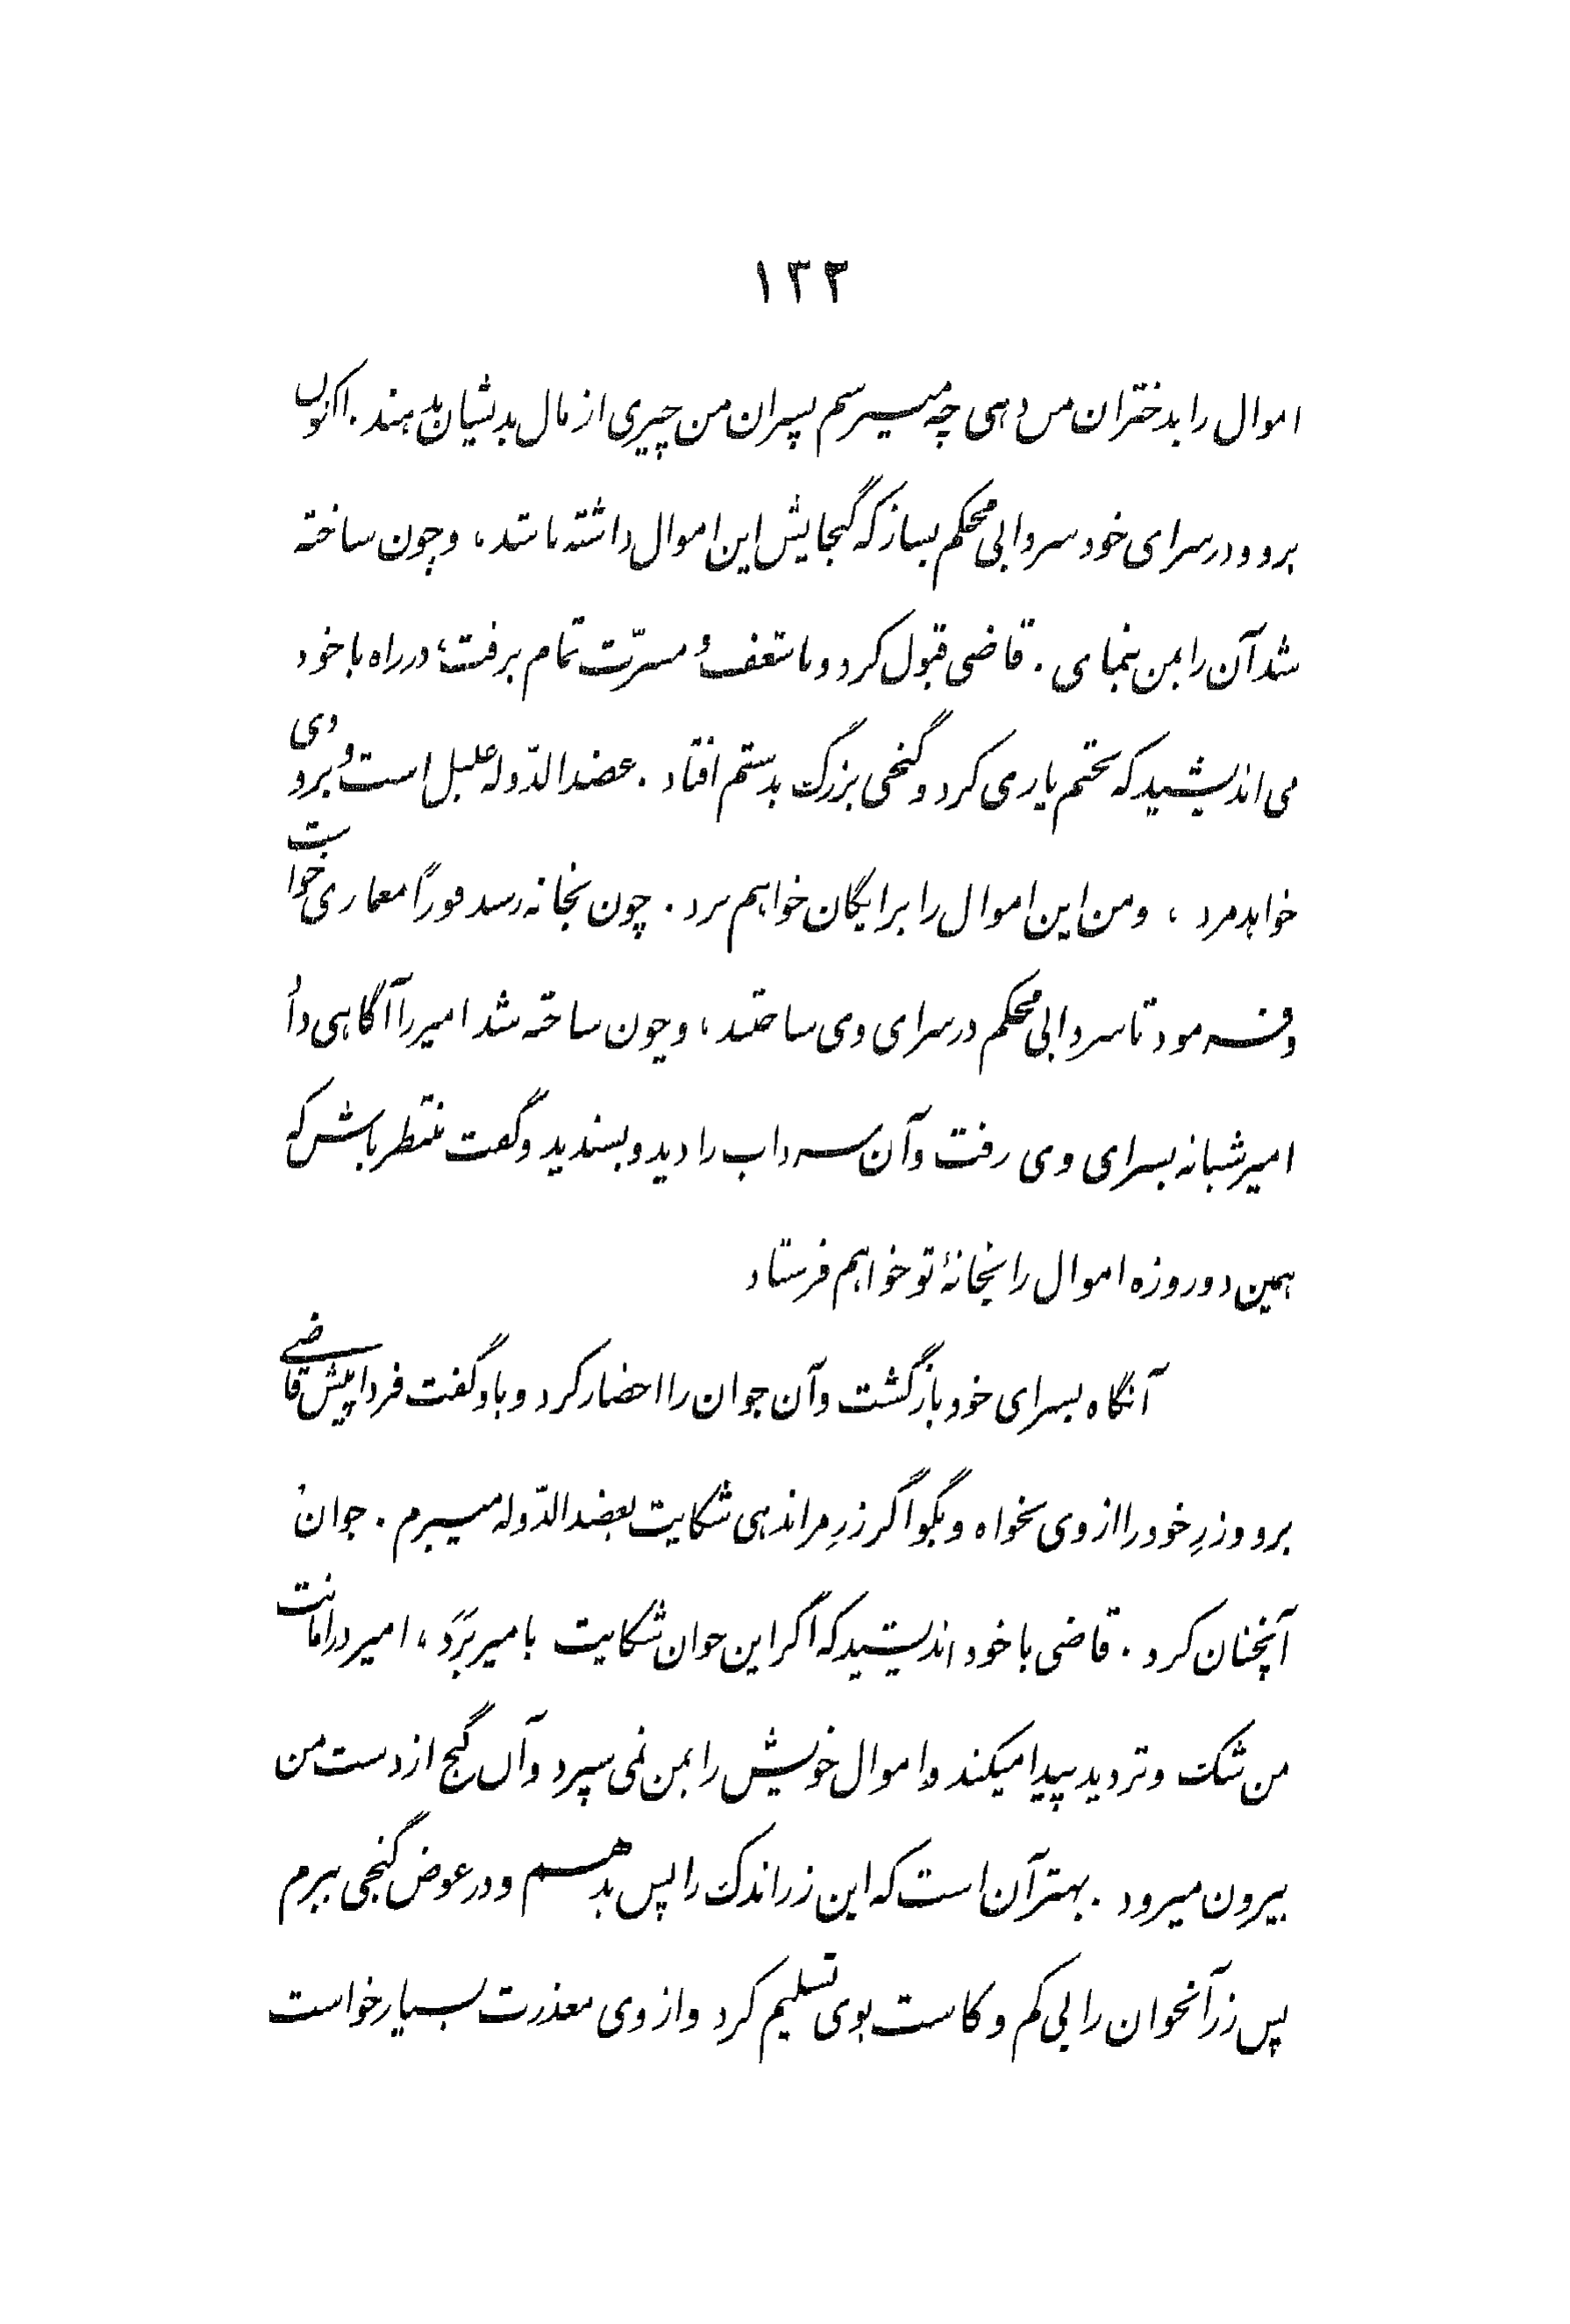 ۱۳۳
اموال را بدختران من دهی چه میترسم پسران من چیزی از مال بدیشان ندهند. اکنون
برو و در سرای خود سردابی محکم بساز که گنجایش این اموال داشته باشد، و چون ساخته
شد آن را بمن بنمای. قاضی قبول کرد و با شعف و مسرّت تمام برفت، در راه با خود
می اندیشید که بختم یاری کرد و گنجی بزرگ بدستم افتاد. عضدالدّوله علیل است و بزودی
خواهد مرد، و من این اموال را برایگان خواهم برد. چون بخانه رسد فوراً معماری خواست
و فرمود تا سردابی محکم در سرای وی ساختند، و چون ساخته شد امیر را آگاهی داد
امیر شبانه بسرای وی رفت و آن سرداب را دید و بپسندید و گفت منتظر باش که
همین دو روزه اموال را بخانهٔ تو خواهم فرستاد
آنگاه بسرای خود بازگشت و آن جوان را احضار کرد و باو گفت فردا پیش قاضی
برو و زرِ خود را از وی بخواه و بگو اگر زرِ مرا ندهی شکایت بعضدالدّوله میبرم. جوان
آنچنان کرد. قاضی با خود اندیشید که اگر این جوان شکایت بامیر بَرَد، امیر در امانت
من شک و تردید پیدا میکند و اموال خویش را بمن نمی سپرد و آن گنج از دست من
بیرون میرود. بهتر آن است که این زر اندک را پس بدهم و در عوض گنجی ببرم
پس زر آنجوان را بی کم و کاست بوی تسلیم کرد و از وی معذرت بسیار خواست